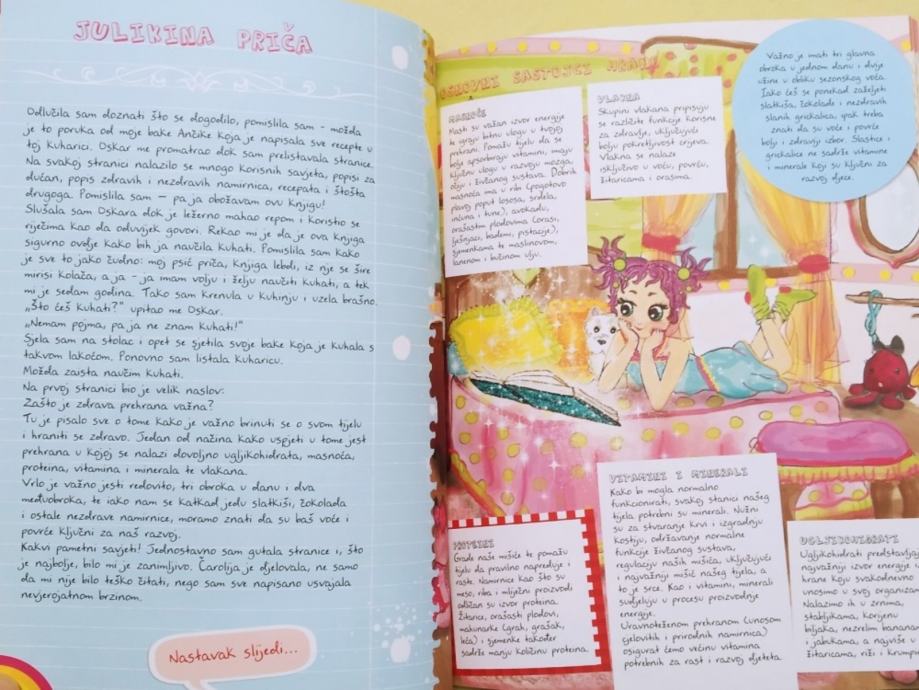 JULIKINA PRIČA
Odlučila sam doznati što se dogodilo, pomislila sam - možda
je to poruka od moje bake Ančike koja je napisala sve recepte u
toj kuharici. Oskar me promatrao dok sam prelistavala stranice.
Na svakoj stranici nalazilo se mnogo korisnih savjeta, popisi za
dućan, popis zdravih i nezdravih namirnica, recepata i štošta
drugoga. Pomislila sam – pa ja obožavam ovu knjigu!
Slušala sam Oskara dok je ležerno mahao repom i koristio se
riječima kao da oduvijek govori. Rekao mi je da je ova knjiga
sigurno ovdje kako bih ja naučila kuhati. Pomislila sam kako
je sve to jako čudno: moj psić priča, knjiga lebdi, iz nje se šire
mirisi kolača, a ja - ja imam volju i želju naučiti kuhati, a tek
mi je sedam godina. Tako sam krenula u kuhinju i uzela brašno.
„Što ćeš kuhati?” upitao me Oskar.
„Nemam pojma, pa ja ne znam kuhati!”
Sjela sam na stolac i opet se sjetila svoje bake koja je kuhala s
takvom lakoćom. Ponovno sam listala kuharicu.
Možda zaista naučim kuhati.
Na prvoj stranici bio je velik naslov:
Zašto je zdrava prehrana važna?
Tu je pisalo sve o tome kako je važno brinuti se o svom tijelu
i hraniti se zdravo. Jedan od načina kako uspjeti u tome jest
prehrana u kojoj se nalazi dovoljno ugljikohidrata, masnoća,
proteina, vitamina i minerala te vlakana.
Vrlo je važno jesti redovito, tri obroka u danu i dva
međuobroka, te iako nam se katkad jedu slatkiši, čokolada
i ostale nezdrave namirnice, moramo znati da su baš voće i
povrće ključni za naš razvoj.
Kakvi pametni savjeti! Jednostavno sam gutala stranice i, što
je najbolje, bilo mi je zanimljivo. Čarolija je djelovala, ne samo
da mi nije bilo teško čitati, nego sam sve napisano usvajala
nevjerojatnom brzinom.
Nastavak slijedi...
OSNOVNI SASTOJCI HRANE
MASNOĆE
Masti su važan izvor energije
te igraju bitnu ulogu u tvojoj
ishrani. Pomažu tijelu da se
bolje apsorbiraju vitamini, imaju
ključnu ulogu u razvoju mozga,
očiju i živčanog sustava. Dobrih
masnoća ima u ribi (pogotovo
plavoj poput lososa, srdela,
inćuna i tune), avokadu,
orašastim plodovima (orasi,
lješnjaci, bademi, pistacije),
sjemenkama te maslinovom,
lanenom i bučinom ulju.
VLAKNA
Skupini vlakana pripisuju
se različite funkcije korisne
za zdravlje, uključujući
bolju pokretljivost crijeva.
Vlakna se nalaze
isključivo u voću, povrću,
žitaricama i orasima.
Važno je imati tri glavna
obroka u jednom danu i dvije
užine u obliku sezonskog voća.
Iako ćeš se ponekad zaželjeti
slatkiša, čokolade i nezdravih
slanih grickalica, ipak treba
znati da su voće i povrće
bolji i zdraviji izbor. Slastice i
grickalice ne sadrže vitamine
i minerale koji su ključni za
razvoj djece.
PROTEINI
Grade naše mišiće te pomažu
tijelu da pravilno napreduje i
raste. Namirnice kao što su
meso, riba i mliječni proizvodi
odličan su izvor proteina.
Žitarice, orašasti plodovi,
mahunarke (grah, grašak,
leća) i sjemenke također
sadrže manju količinu proteina.
VITAMINI I MINERALI
Kako bi mogla normalno
funkcionirati, svakoj stanici našeg
tijela potrebni su minerali. Nužni
su za stvaranje krvi i izgradnju
kostiju, održavanje normalne
funkcije živčanog sustava,
regulaciju naših mišića, uključujući
i najvažniji mišić našeg tijela, a
to je srce. Kao i vitamini, minerali
sudjeluju u procesu proizvodnje
energije.
Uravnoteženom prehranom (unosom
cjelovitih i prirodnih namirnica)
osigurat ćemo većinu vitamina
potrebnih za rast i razvoj djeteta.
UGLJIKOHIDRATI
Ugljikohidrati predstavljaju
najvažniji izvor energije iz
hrane koju svakodnevno
unosimo u svoj organizam.
Nalazimo ih u zrnima,
stabljikama, korijenu
biljaka, nezrelim bananama
i jabukama, a najviše u
žitaricama, riži i krumpiru.